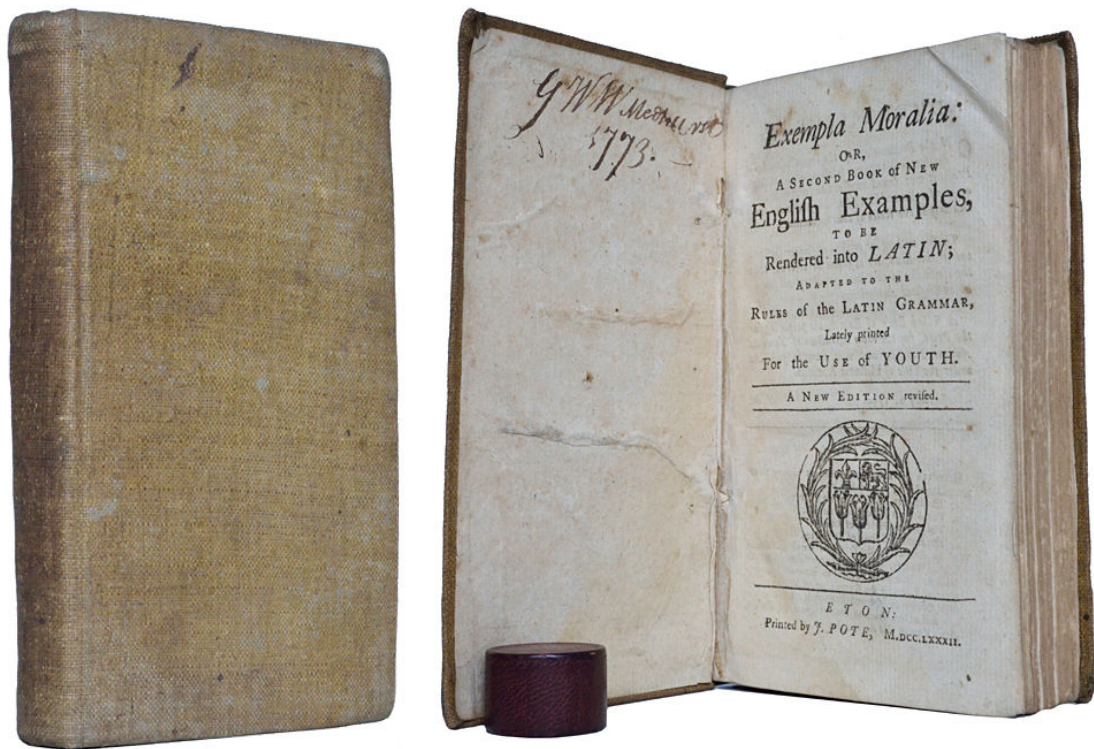 G W W Medhurst
1773.
Exempla Moralia:
OR,
A SECOND BOOK of NEW
Engliſh Examples,
TO BE
Rendered into LATIN;
ADAPTED TO THE
RULES of the LATIN GRAMMAR,
Lately printed
For the USE of YOUTH.
A NEW EDITION reviſed.
ETON:
Printed by J. POTE, M.DCC.LXXXII.